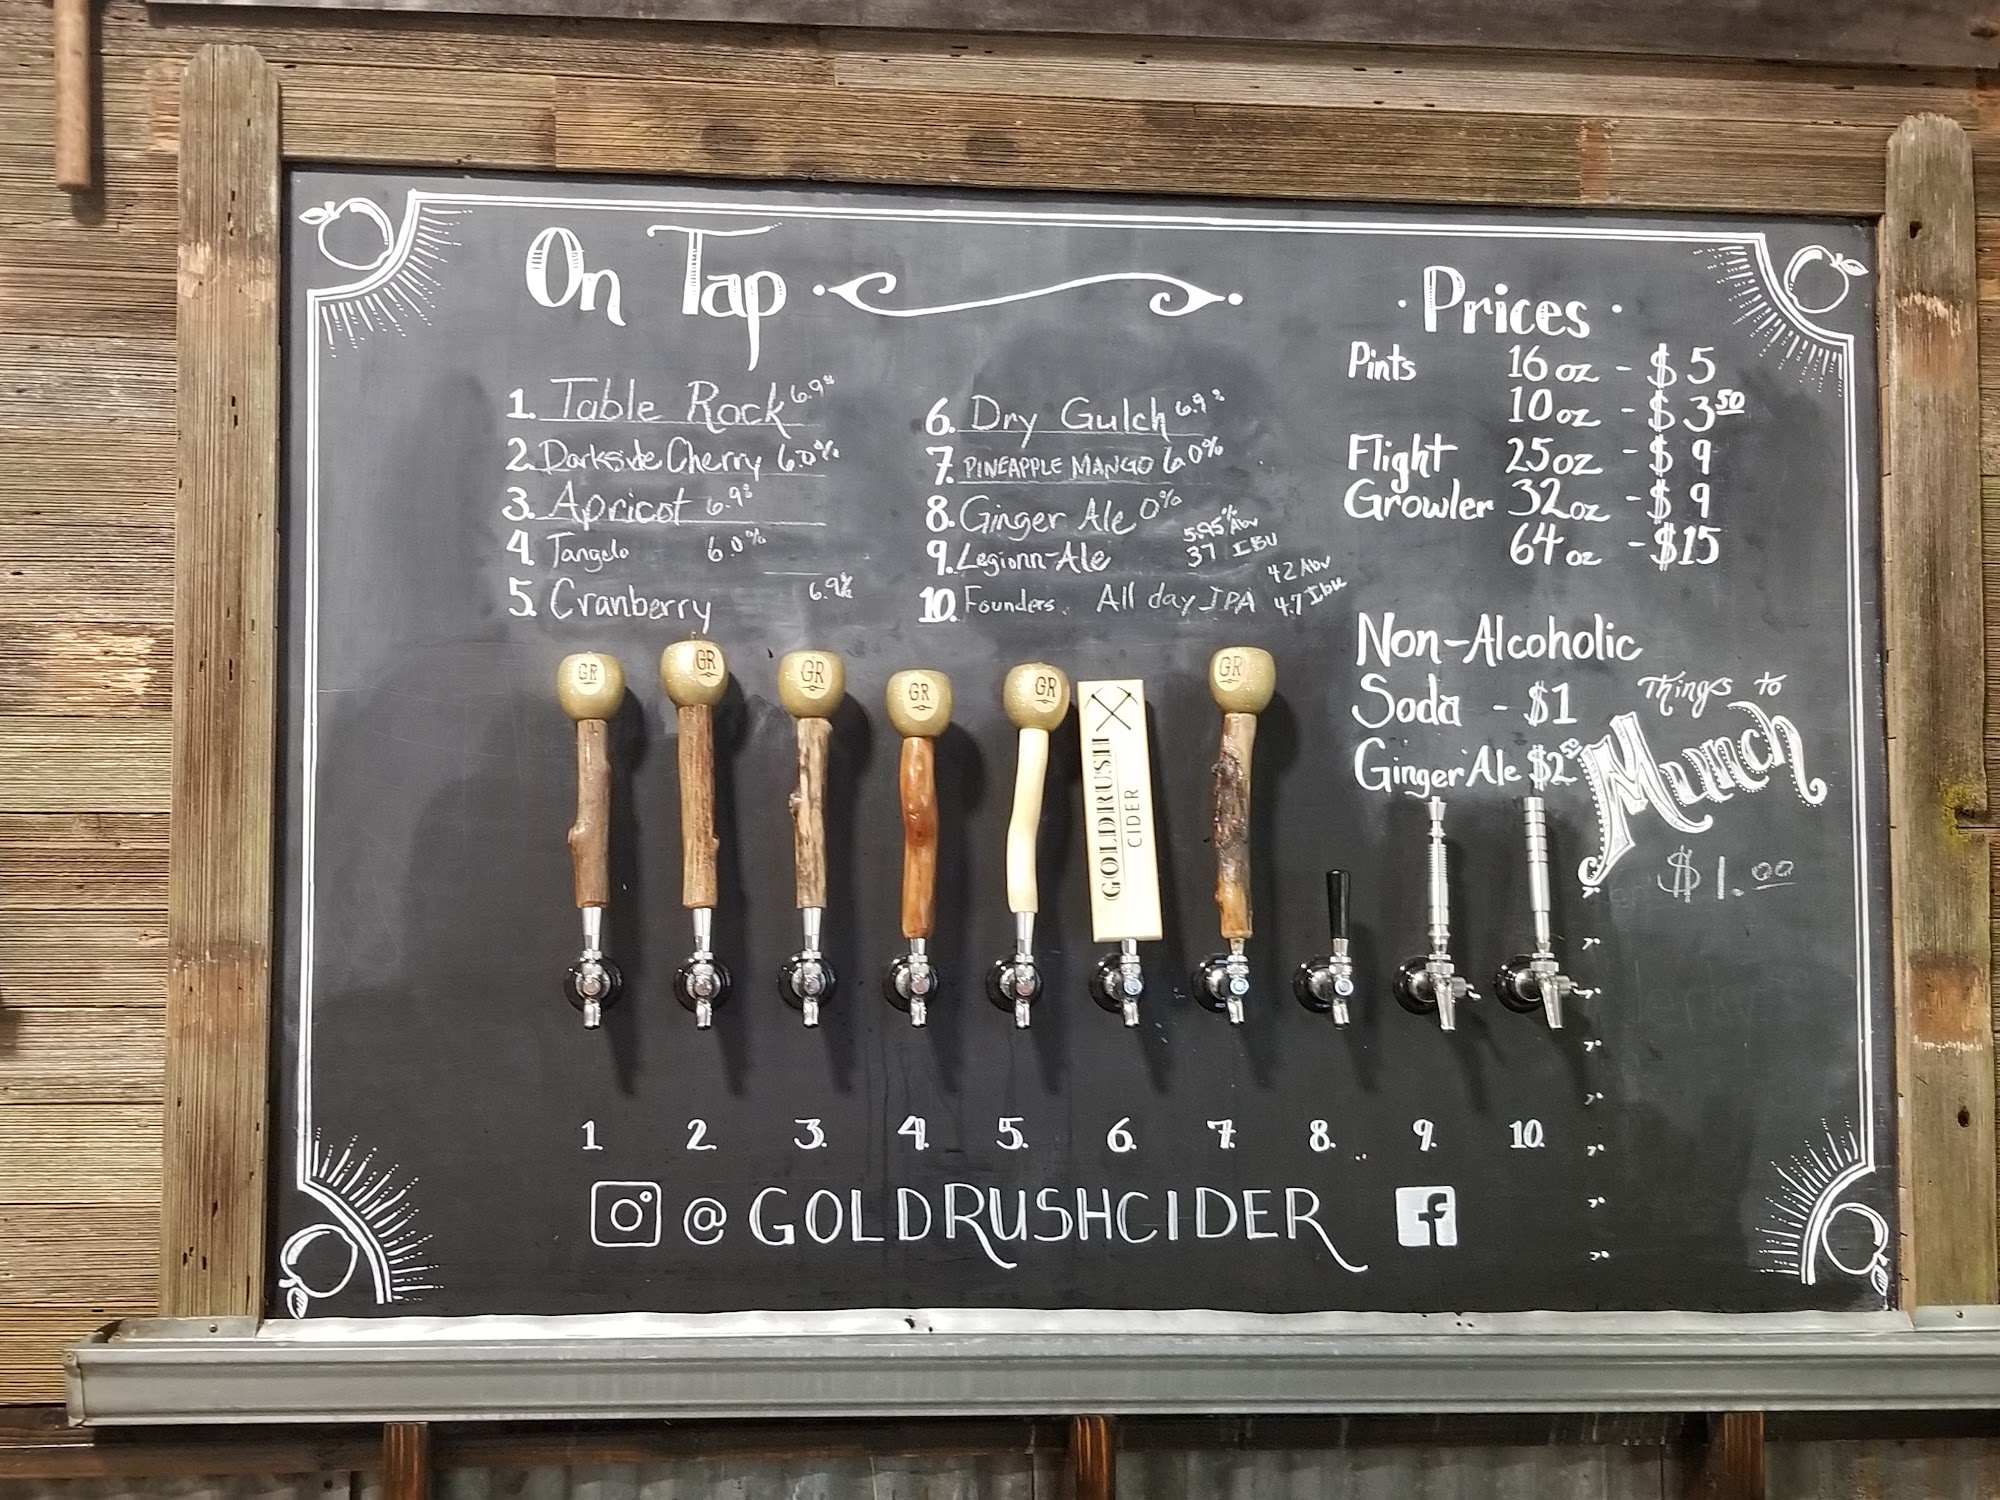 On Tap
1. Table Rock 6.9%
2. Darkside Cherry 6.0%
3. Apricot 6.9%
4. Tangelo 6.0%
5. Cranberry 6.9%
6. Dry Gulch 6.9%
7. PINEAPPLE MANGO 6.0%
8. Ginger Ale 0%
9. Legionn-Ale 5.95% Abv
37 IBU
10. Founders. All day IPA 42 Abv
4.7 Ibu
· Prices ·
Pints 16 oz - $5
10 oz - $3 50
Flight 25 oz - $9
Growler 32 oz - $9
64 oz - $15
Non-Alcoholic
Soda - $1
Ginger Ale $2
Things to
Munch
$1.00
GR
GR
GR
GR
GR
GOLDRUSH
CIDER
GR
1 2. 3. 4. 5. 6. 7. 8. 9. 10.
@GOLDRUSHCIDER f